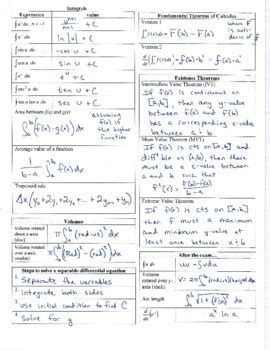 Integrals
Expression value
+ C
ln |u| + C
-cos u + C
sin u + C
e^u + C
tan u + C
sec u + C
Area between f(x) and g(x)
∫_a^b (f(x)-g(x)) dx assuming f(x) is the higher function
Average value of a function
1/(b-a) ∫_a^b f(x) dx
Trapezoidal rule
Volumes
Volume rotated about x-axis (disk) π∫_a^b (radius)² dx
Volume rotated about x-axis (washer) π∫_a^b (R²) - (r²) dx
Steps to solve a separable differential equation
1. Separate the variables
2. integrate both sides
3. use initial condition to find C
4. Solve for y
Fundamental Theorem of Calculus
Version 1
∫_a^b f(x) dx = F(b) - F(a) where F is anti-deriv of f
Version 2
Existence Theorems
Intermediate Value Theorem (IVT)
If f(x) is continuous on
[a,b], then any y-value
between f(a) and f(b)
has a corresponding x-value
between a + b
Mean Value Theorem (MVT)
If f(x) is cts on [a,b] and
diff'ble on (a,b), then there
must be a c-value between
a and b such that
f'(c) = (f(b)-f(a))/(b-a)
Extreme Value Theorem
If f(x) is cts on [a,b]
then f must a maximum
and minimum y-value at
least once between a + b
After the exam...
∫u dv uv - ∫v du
Volume rotated over y-axis (shell) V = 2π∫_a^b (radius)(height) dx
Arc length ∫_a^b √(1 + (f'(x))²) dx
d/dx (a^x) a^x ln a